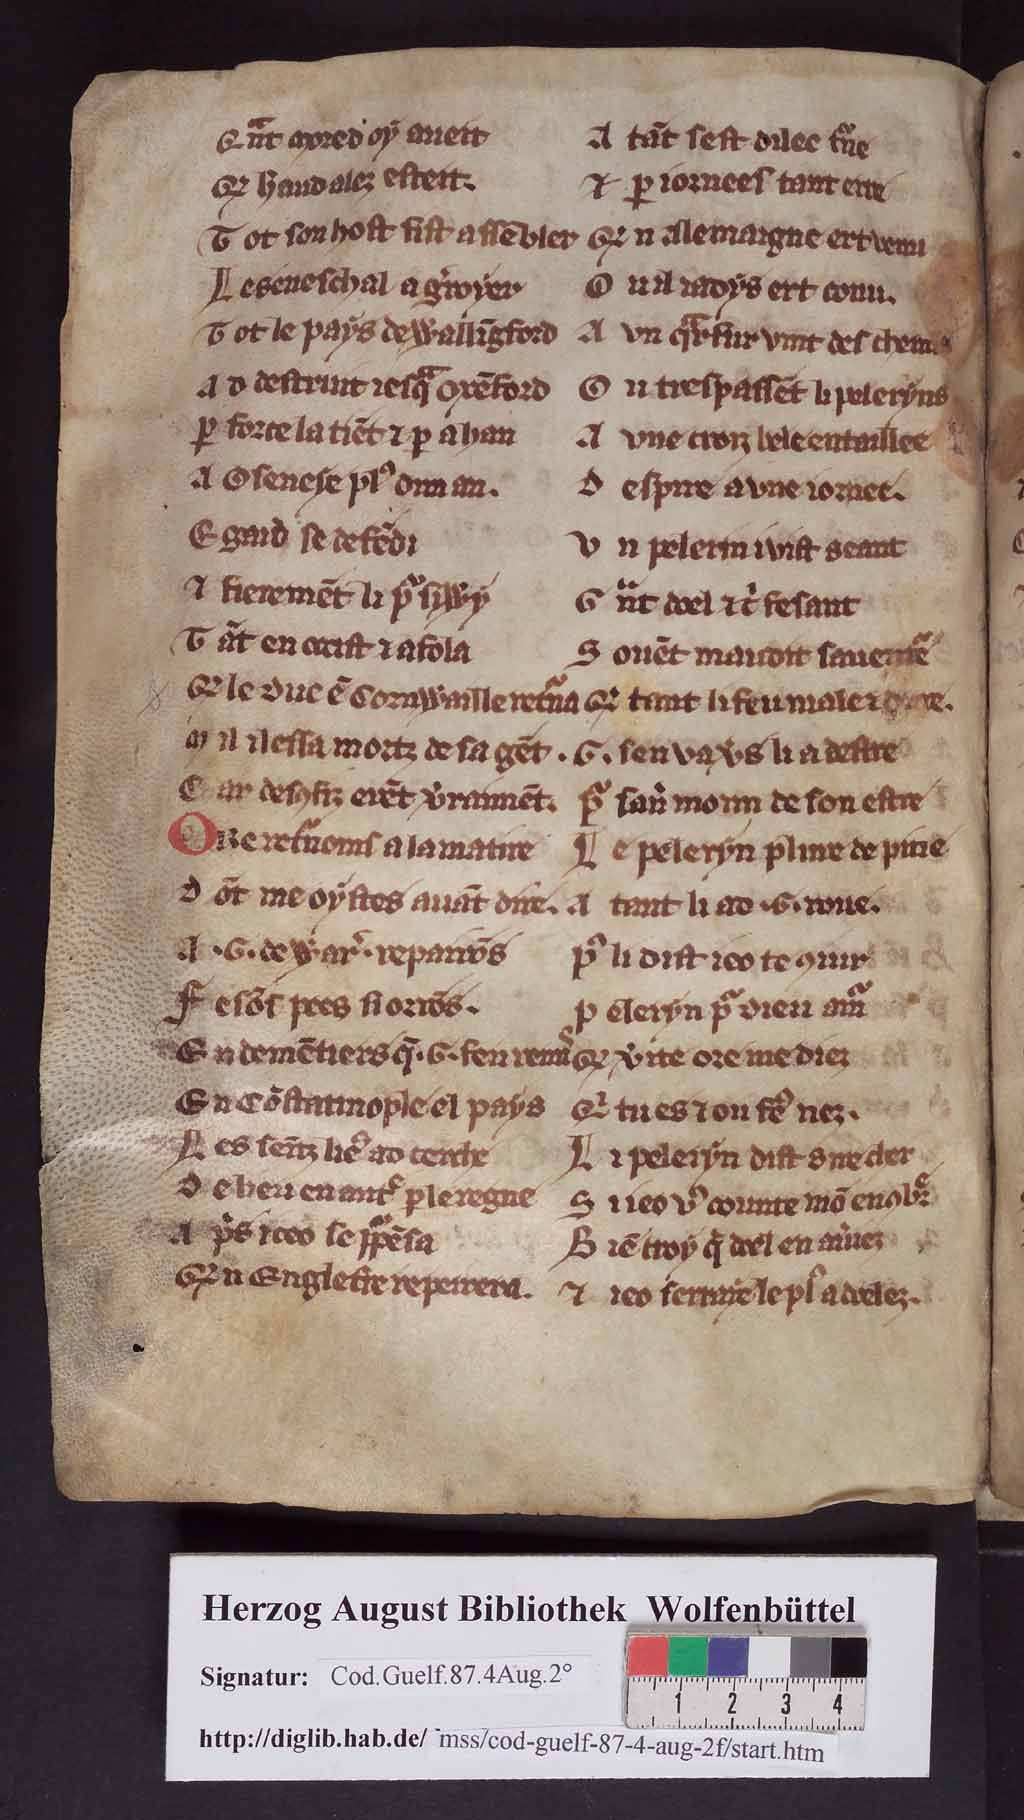 Qñt apred oÿ aueit
Q̃ haud alez esteit.
T ot son host fist assẽbler
L e seneschal a g̃royer
T ot le paÿs de Wallĩgford
A d destruit iesq̃ Oxẽford
ꝑ force la tiẽt ⁊ ꝑ ahan
A Oseneye plꝰ dun an.
E graud se defẽdi
⁊ fieremẽt li siwy
T ãt en occist ⁊ afola
Q̃ le duc ẽ Cornwaille retña
M il i lessa mortz de sa gẽt.
C ar desҫfiz erẽt v̓raimẽt.
O Re ret̃noms a la matire
D õt me oÿstes auãt dire.
A .G. de War̓. repairõs
F esõs pees si orrõs.
E ndemẽtiers q̃ .G. fen
E n Cõstatinople el paÿs
L es lent̃z ad cerche
D e heu en aut̃ ꝑ le regne
A p̃s iceo se ꝑpẽsa
Q̃ n Englet̃re repeirera.
A tãt sest dilec t̃ne
⁊ ꝑ iornees tant erre
Q̃ n Alemaigne ert venu
O u il iadÿs ert conu.
A vn q̃rfur vint des chem
O u trespassẽt li pelerÿns
A vne croiz bele entaillee
D espire a vne iornee.
V n pelerin i vist seant
G ñt doel ⁊ c̓ fesant
S ouẽt maudit
Q̃ tant li feu male ⁊ dure.
.G. sen va v̓s li a destre
p̃ sau̓ mon de son estre
L e pelerÿn plure de pitie
A tant li ad .G. roue.
pꝰ li dist ieo te ꝯiur
P elerÿn p̃ dieu am̃
Q̃ v̓ite ore me diez
Q̃ tu es ⁊ ou fꝰ nez.
L i pelerÿn dist sire cher
S i ieo vꝰ counte mõ enꝯbr̃
B iẽ croy q̃ doel en au̓iez
⁊ ieo serraÿe le plꝰ adolez.
Herzog August Bibliothek Wolfenbüttel
Signatur: Cod.Guelf.87.4Aug.2°
1 2 3 4
http://diglib.hab.de/ mss/cod-guelf-87-4-aug-2f/start.htm